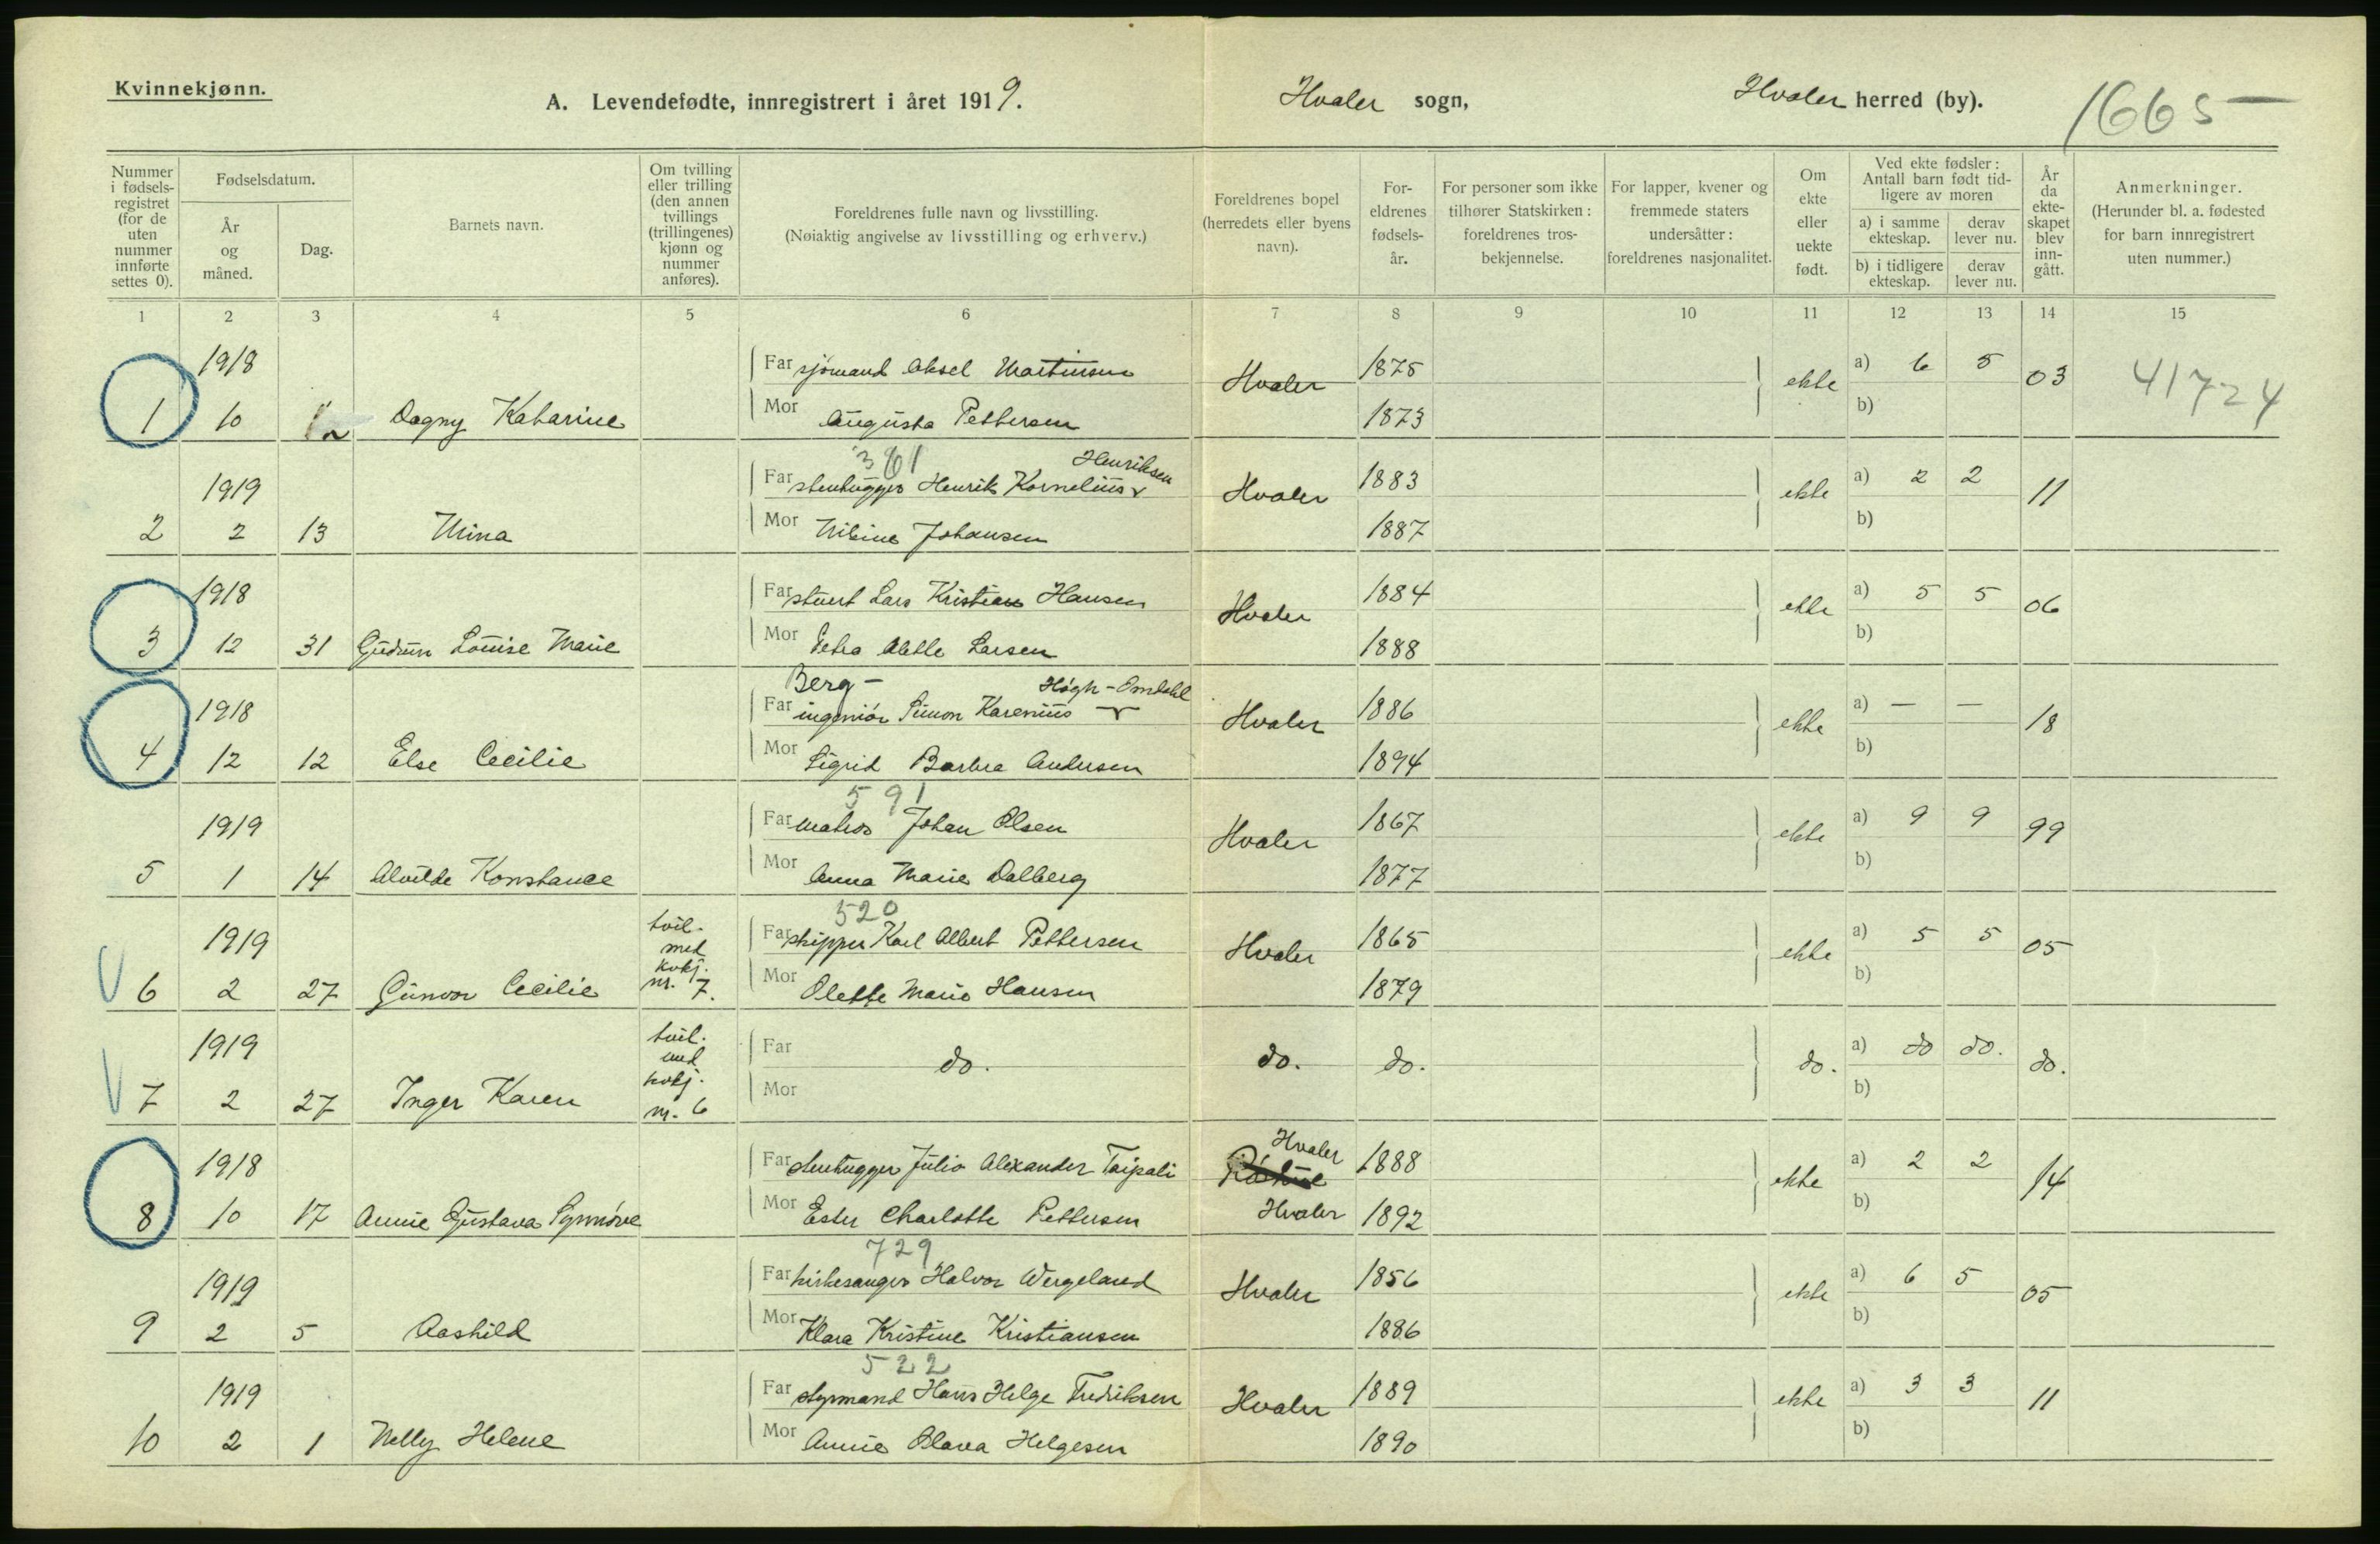 Kvinnekjønn.
A. Levendefødte, innregistrert i året 1919.
Hvaler sogn,
Hvaler herred (by).
1665
Nummer i fødsels-registret (for de uten nummer innførte settes 0).
Fødselsdatum.
År og måned.
Dag.
Barnets navn.
Om tvilling eller trilling (den annen tvillings (trillingenes) kjønn og nummer anføres).
Foreldrenes fulle navn og livsstilling. (Nøiaktig angivelse av livsstilling og erhverv.)
Foreldrenes bopel (herredets eller byens navn).
For-eldrenes fødsels-år.
For personer som ikke tilhører Statskirken: foreldrenes tros-bekjennelse.
For lapper, kvener og fremmede staters undersåtter: foreldrenes nasjonalitet.
Om ekte eller uekte født.
Ved ekte fødsler: Antall barn født tid-ligere av moren
a) i samme ekteskap.
derav lever nu.
b) i tidligere ekteskap.
derav lever nu.
År da ekte-skapet blev inn-gått.
Anmerkninger. (Herunder bl. a. fødested for barn innregistrert uten nummer.)
1 2 3 4 5 6 7 8 9 10 11 12 13 14 15
1918 Far sjömand Aksel Martinsen Hvaler 1875 ekte a) 6 5 03 41724
1 10 12 Dagny Katarine Mor Augusta Pettersen 1873 b)
361 Henriksen
1919 Far stenhugger Henrik Kornelius Hvaler 1883 ekte a) 2 2 11
2 2 13 Mina Mor Nikine Johansen 1887 b)
1918 Far stuert Lars Kristian Hansen Hvaler 1884 ekte a) 5 5 06
3 12 31 Gudrun Louise Marie Mor Petra Alette Larsen 1888 b)
Berg- Høgh-Omdahl
1918 Far ingeniör Simon Karenius Hvaler 1886 ekte a) — — 18
4 12 12 Else Cecilie Mor Sigrid Barbra Andersen 1894 b)
591
1919 Far matros Johan Olsen Hvaler 1867 ekte a) 9 9 99
5 1 14 Alvilde Konstance Mor Anna Marie Dalberg 1877 b)
520
1919 tvil. med kvkj. nr. 7. Far skipper Karl Albert Pettersen Hvaler 1865 ekte a) 5 5 05
6 2 27 Gunvor Cecilie Mor Olette Marie Hansen 1879 b)
1919 tvil. med kvkj. nr. 6 Far do. do. do. do. a) do do. do.
7 2 27 Inger Karen Mor b)
Hvaler
1918 Far stenhugger Julio Alexander Taipali 1888 ekte a) 2 2 14
8 10 17 Annie Gustava Synnöve Mor Ester Charlotte Pettersen Hvaler 1892 b)
729
1919 Far kirkesanger Halvor Wergeland Hvaler 1856 ekte a) 6 5 05
9 2 5 Aashild Mor Klara Kristine Kristiansen 1886 b)
522
1919 Far styrmand Hans Helge Fredriksen Hvaler 1889 ekte a) 3 3 11
10 2 1 Nelly Helene Mor Annie Olava Helgesen 1890 b)